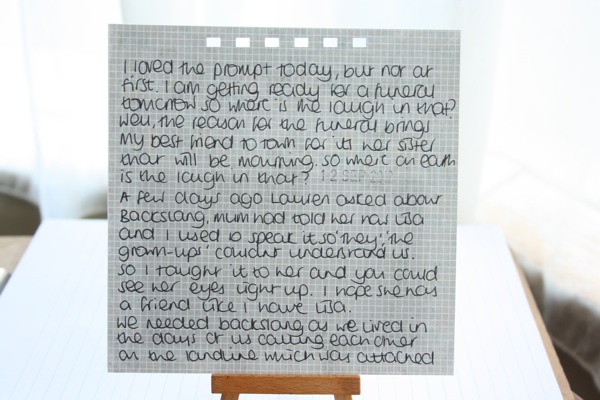 I loved the prompt today, but not at
first. I am getting ready for a funeral
tomorrow so where is the laugh in that?
Well, the reason for the funeral brings
my best friend to town for its her sister
that will be mourning. So where on earth
is the laugh in that? 12 SEP
A few days ago Lauren asked about
Backslang, mum had told her how Lisa
and I used to speak it so 'they', 'the
grown-ups' couldnt understand us.
so I taught it to her and you could
see her eyes light up. I hope she has
a friend like I have Lisa.
We needed backslang as we lived in
the days of us calling each other
on the landline which was attached